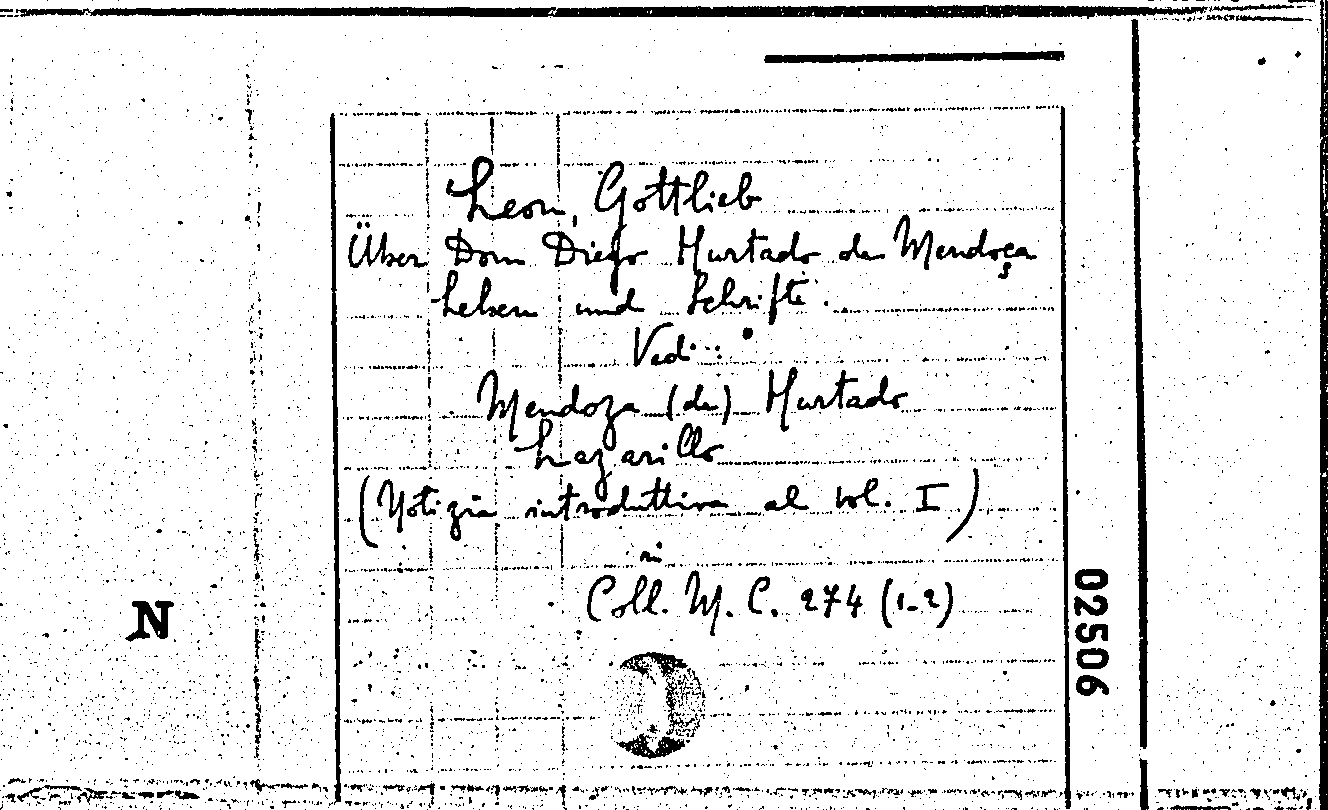 Leon, Gottlieb
Über Dom Diego Hurtado de Mendoça
Leben und Schrifte.
Vedi:
Mendoza (de) Hurtado
Lazarillo
(Notizia introduttiva al vol. I)
in
Coll. M. C. 274 (1-2)
N
02506